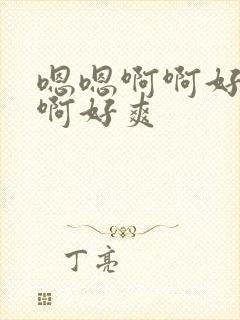 嗯嗯啊啊好
啊好爽
丁亮